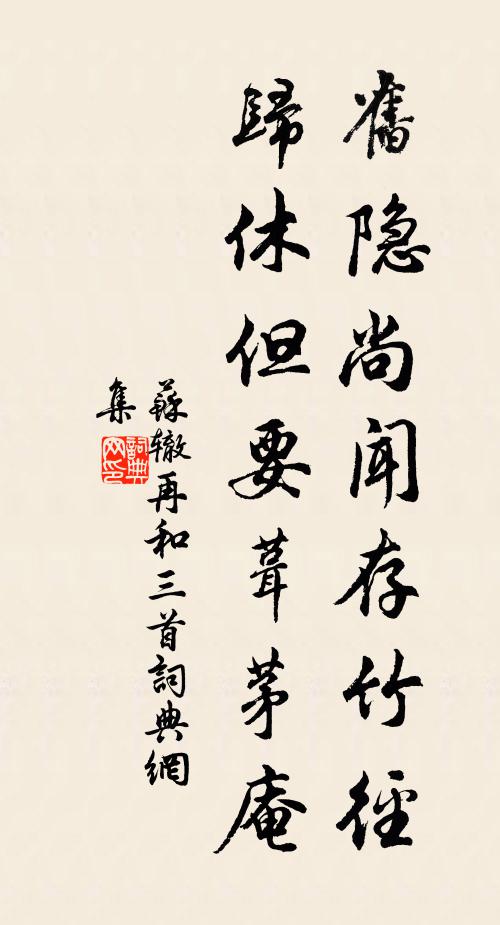 舊隐尚闻存竹徑
歸休但要葺茅庵
蘇辙再和三首詞典網
集
詞典网印